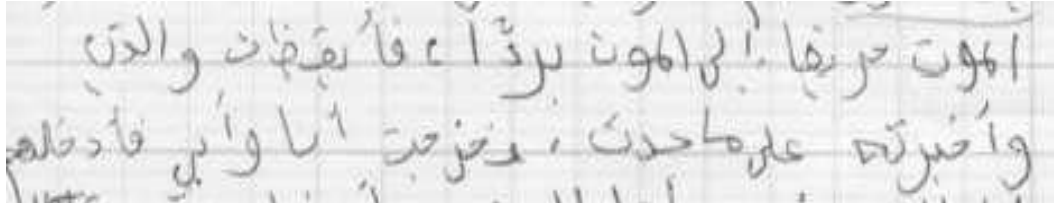 الموت حريقا إلى الموت برداً، فأيقظت والدي
وأخبرته على ما حدث، فخرجت أنا وأبي فأدخلهم